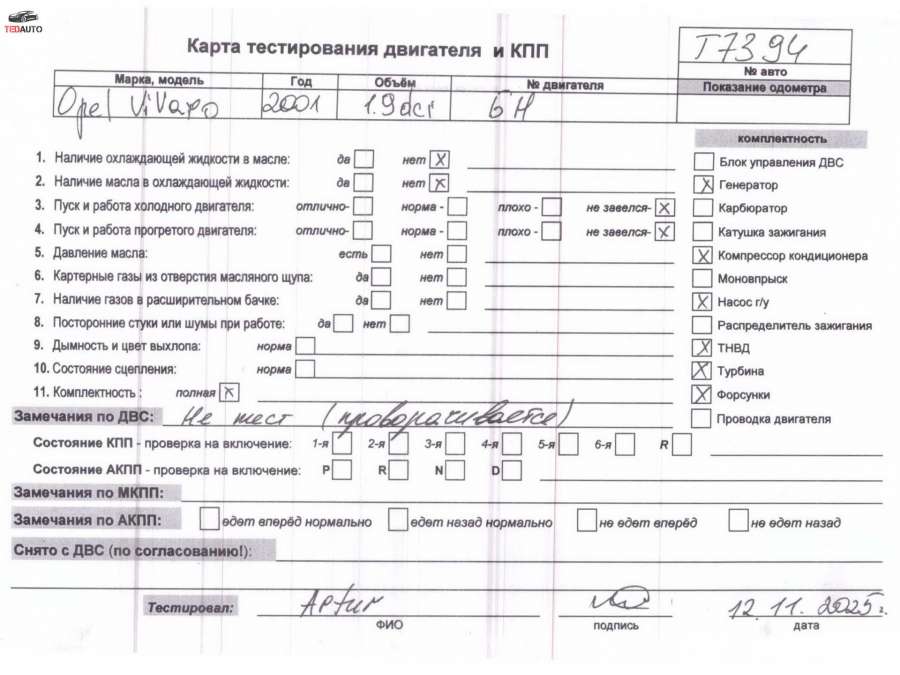 TEDAUTO
Карта тестирования двигателя и КПП
T7394
№ авто
Марка, модель Год Объём № двигателя Показание одометра
Opel Vivaro 2001 1.9 dci 6H
комплектность
1. Наличие охлаждающей жидкости в масле: да нет X Блок управления ДВС
2. Наличие масла в охлаждающей жидкости: да нет X X Генератор
3. Пуск и работа холодного двигателя: отлично- норма - плохо - не завелся- X Карбюратор
4. Пуск и работа прогретого двигателя: отлично- норма - плохо - не завелся- X Катушка зажигания
5. Давление масла: есть нет X Компрессор кондиционера
6. Картерные газы из отверстия масляного щупа: да нет Моновпрыск
7. Наличие газов в расширительном бачке: да нет X Насос г/у
8. Посторонние стуки или шумы при работе: да нет Распределитель зажигания
9. Дымность и цвет выхлопа: норма X ТНВД
10. Состояние сцепления: норма X Турбина
11. Комплектность : полная X X Форсунки
Замечания по ДВС: Не тест (проворачивается) Проводка двигателя
Состояние КПП - проверка на включение: 1-я 2-я 3-я 4-я 5-я 6-я R
Состояние АКПП - проверка на включение: P R N D
Замечания по МКПП:
Замечания по АКПП: едет вперёд нормально едет назад нормально не едет вперёд не едет назад
Снято с ДВС (по согласованию!):
Тестировал: Artur 12.11.2025г.
ФИО подпись дата